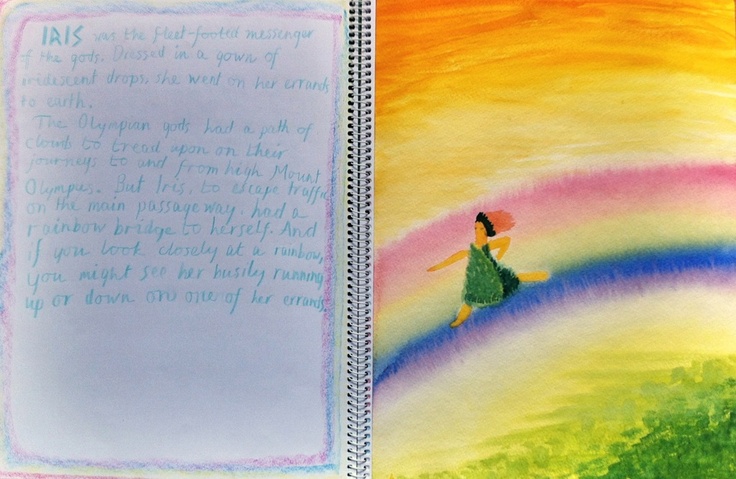 IRIS was the fleet-footed messenger
of the gods. Dressed in a gown of
iridescent drops, she went on her errands
to earth.
The Olympian gods had a path of
clouds to tread upon on their
journeys to and from high Mount
Olympus. But Iris, to escape traffic
on the main passage way, had a
rainbow bridge to herself. And
if you look closely at a rainbow,
you might see her busily running
up or down on one of her errands.